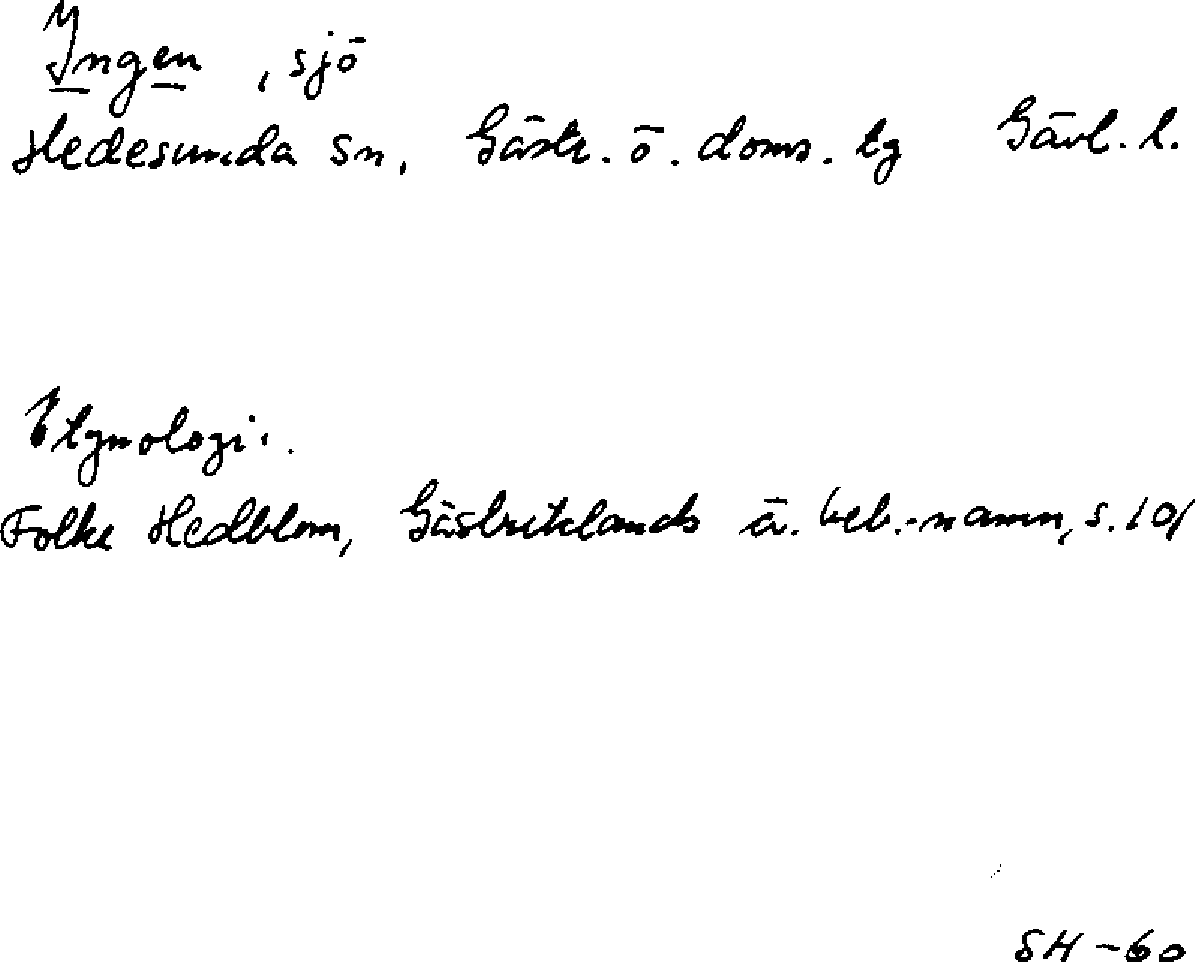 Yngen, sjö
Hedesunda sn, Gästr. ö. doms. tg Gävl. l.
Etymologi.
Folke Hedblom, Gästriklands ä. beb.-namn, s. 101
SH-60